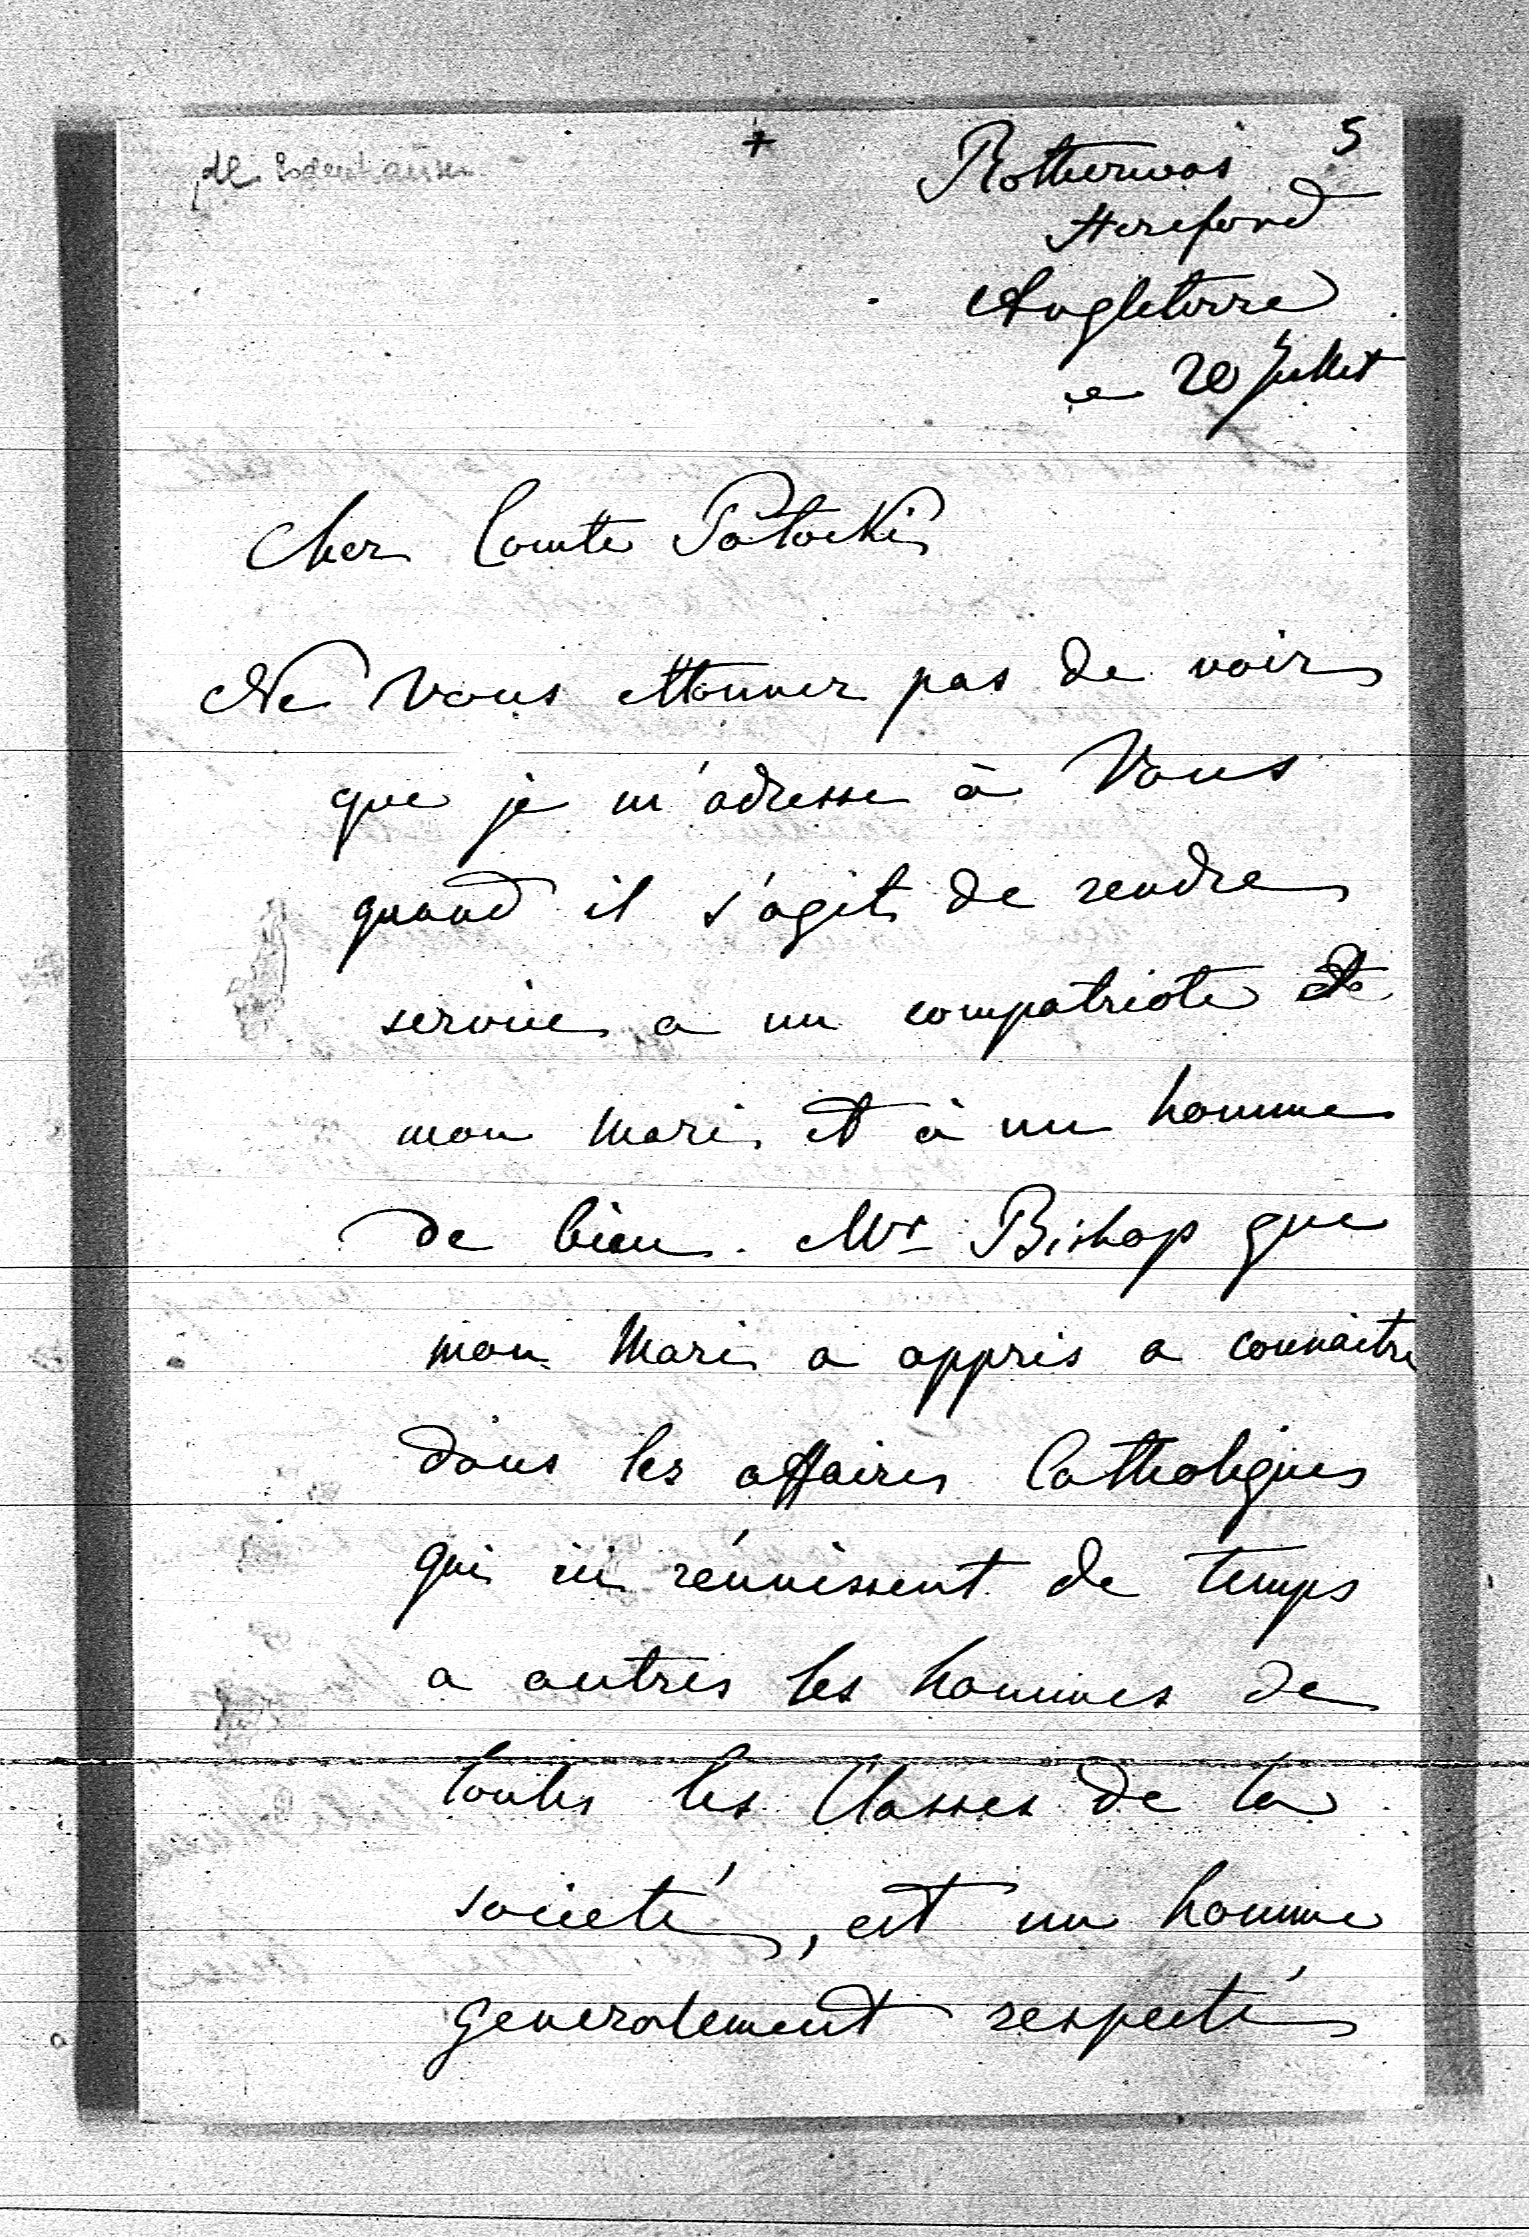 +
5
Rotherwas
Hereford
Angleterre
20 Juillet
Cher Comte Potocki
Ne Vous ettonner pas de voir
que je m'adresse à Vous
quand il s'agit de rendre
service a un compatriote de
mon Mari, et à un homme
de bien. Mr Bishop que
mon Mari a appris a connaitre
dans les affaires Catholiques
qui ici réunissent de temps
a autres les hommes de
toutes les Classes de la
societé, est un homme
generalement respecté